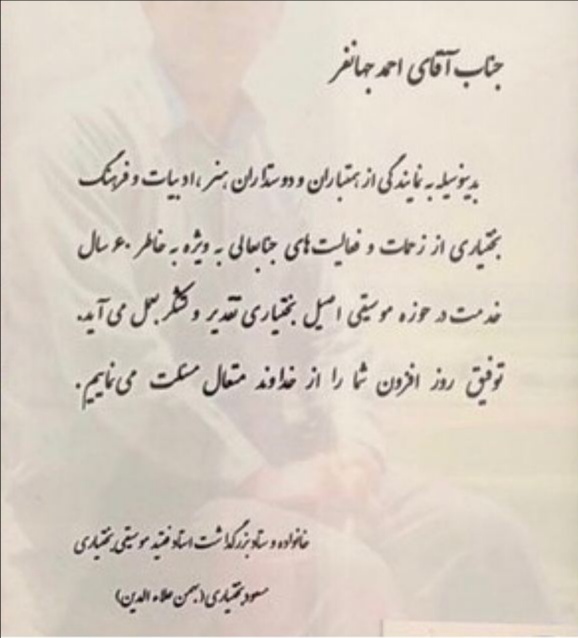 جناب آقای احمد جهانفر
بدینوسیله به نمایندگی از همتباران و دوستداران هنر، ادبیات و فرهنگ
بختیاری از زحمات و فعالیت‌های جنابعالی به ویژه به خاطر ۶۰ سال
خدمت در حوزه موسیقی اصیل بختیاری تقدیر و تشکر بعمل می‌آید.
توفیق روز افزون شما را از خداوند متعال مسئلت می‌نماییم.
خانواده و ستاد بزرگداشت استاد فقید موسیقی بختیاری
مسعود بختیاری (بهمن علاءالدین)